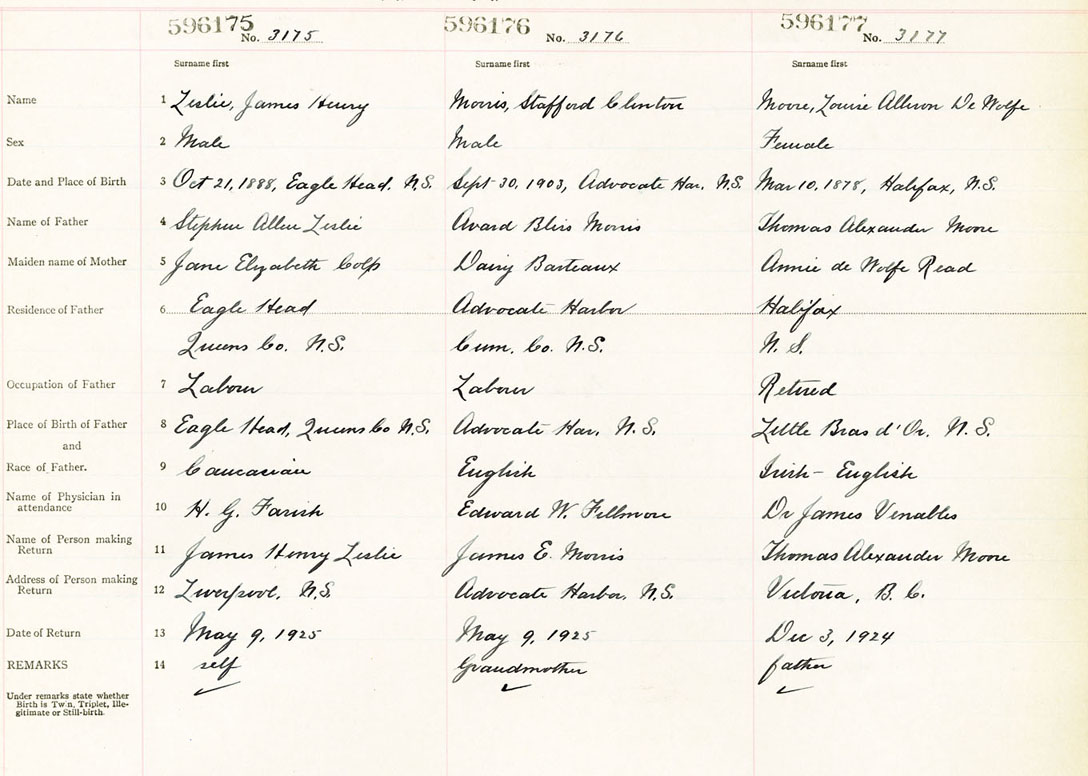 596175 No. 3175 596176 No. 3176 596177 No. 3177
Surname first Surname first Surname first
Name 1 Leslie, James Henry Morris, Stafford Clinton Moore, Louise Allison De Wolfe
Sex 2 Male Male Female
Date and Place of Birth 3 Oct 21, 1888, Eagle Head, N.S. Sept 30, 1903, Advocate Har, N.S. Mar 10, 1878, Halifax, N.S.
Name of Father 4 Stephen Allen Leslie Avard Bliss Morris Thomas Alexander Moore
Maiden name of Mother 5 Jane Elizabeth Colp Daisy Barteaux Annie de Wolfe Read
Residence of Father 6 Eagle Head Advocate Harbor Halifax
Queens Co. N.S. Cum. Co. N.S. N.S.
Occupation of Father 7 Labour Labour Retired
Place of Birth of Father 8 Eagle Head, Queens Co N.S. Advocate Har, N.S. Little Bras d'Or, N.S.
and
Race of Father. 9 Caucasian English Irish - English
Name of Physician in
attendance 10 H. G. Farish Edward W. Fillmore Dr James Venables
Name of Person making
Return 11 James Henry Leslie James E. Morris Thomas Alexander Moore
Address of Person making
Return 12 Liverpool, N.S. Advocate Harbor, N.S. Victoria, B.C.
Date of Return 13 May 9, 1925 May 9, 1925 Dec 3, 1924
REMARKS 14 self Grandmother father
Under remarks state whether
Birth is Twin, Triplet, Ille-
gitimate or Still-birth.